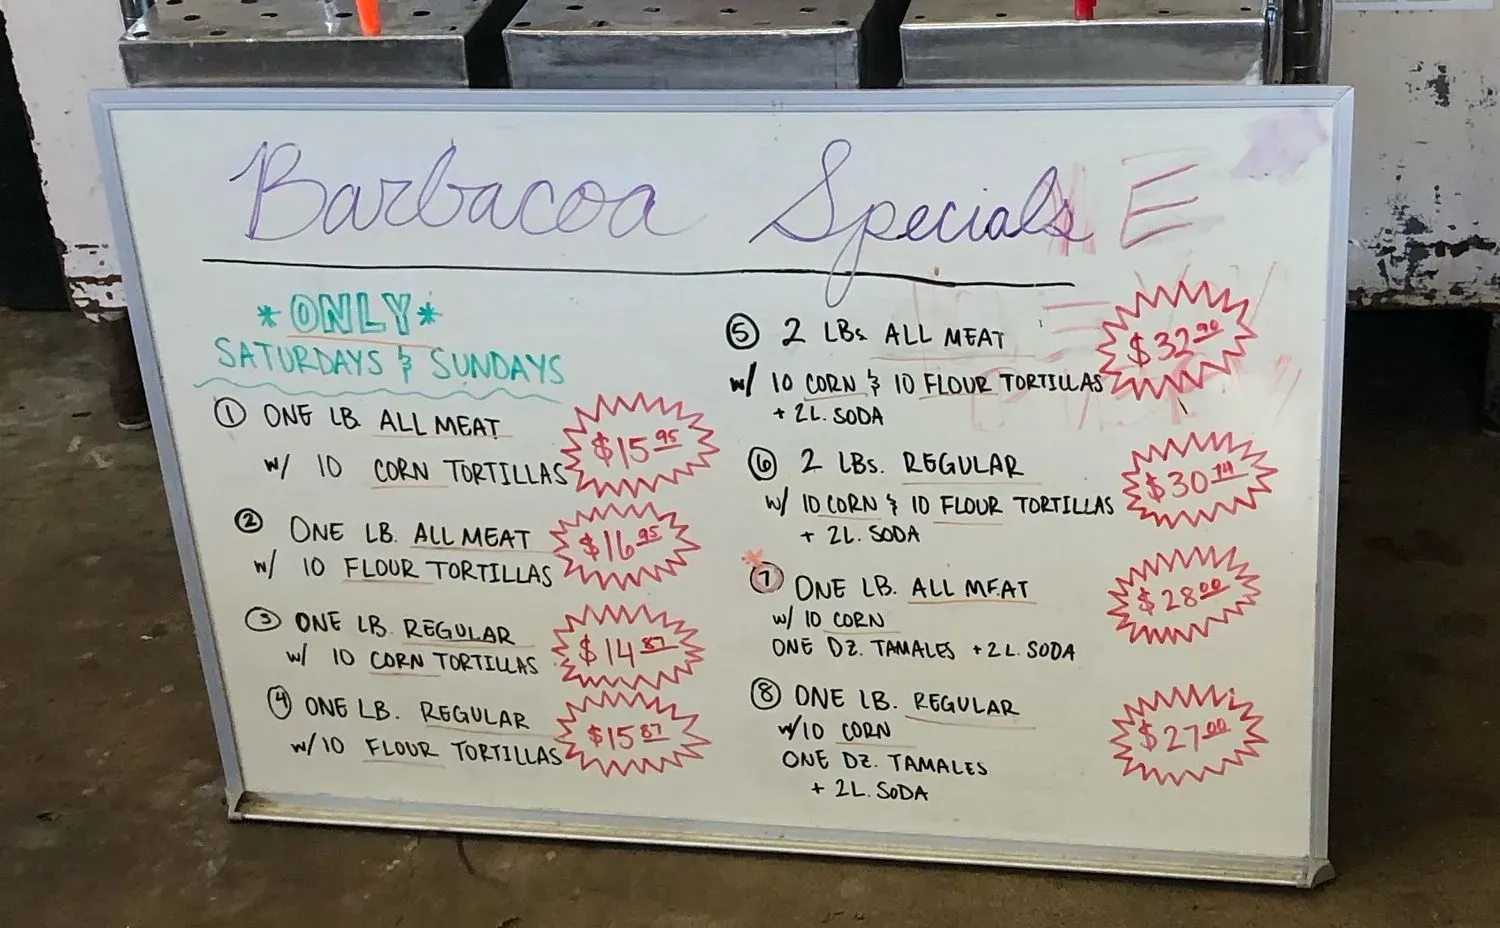 Barbacoa Specials
*ONLY*
SATURDAYS & SUNDAYS
① ONE LB. ALL MEAT
w/ 10 CORN TORTILLAS
$15.95
② ONE LB. ALL MEAT
w/ 10 FLOUR TORTILLAS
$16.95
③ ONE LB. REGULAR
w/ 10 CORN TORTILLAS
$14.87
④ ONE LB. REGULAR
w/10 FLOUR TORTILLAS
$15.87
⑤ 2 LBs ALL MEAT
w/ 10 CORN & 10 FLOUR TORTILLAS
+ 2L. SODA
$32.90
⑥ 2 LBs. REGULAR
w/ 10 CORN & 10 FLOUR TORTILLAS
+ 2L. SODA
*
⑦ ONE LB. ALL MEAT
w/ 10 CORN
ONE DZ. TAMALES + 2L. SODA
$28.00
⑧ ONE LB. REGULAR
w/10 CORN
ONE DZ. TAMALES
+ 2L. SODA
$27.00